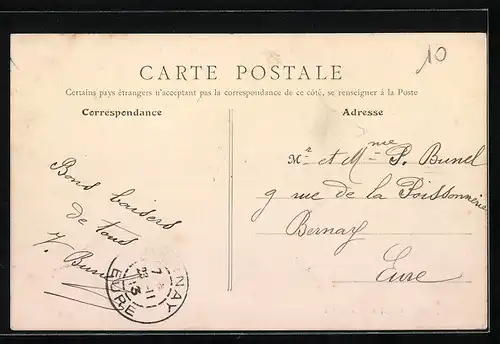 10
CARTE POSTALE
Certains pays étrangers n'acceptant pas la correspondance de ce côté, se renseigner à la Poste
Correspondance
Adresse
Mr et Mme P. Bunel
9 rue de la Poissonnerie
Bernay
Eure
Bons baisers
de tous
NAY
EURE